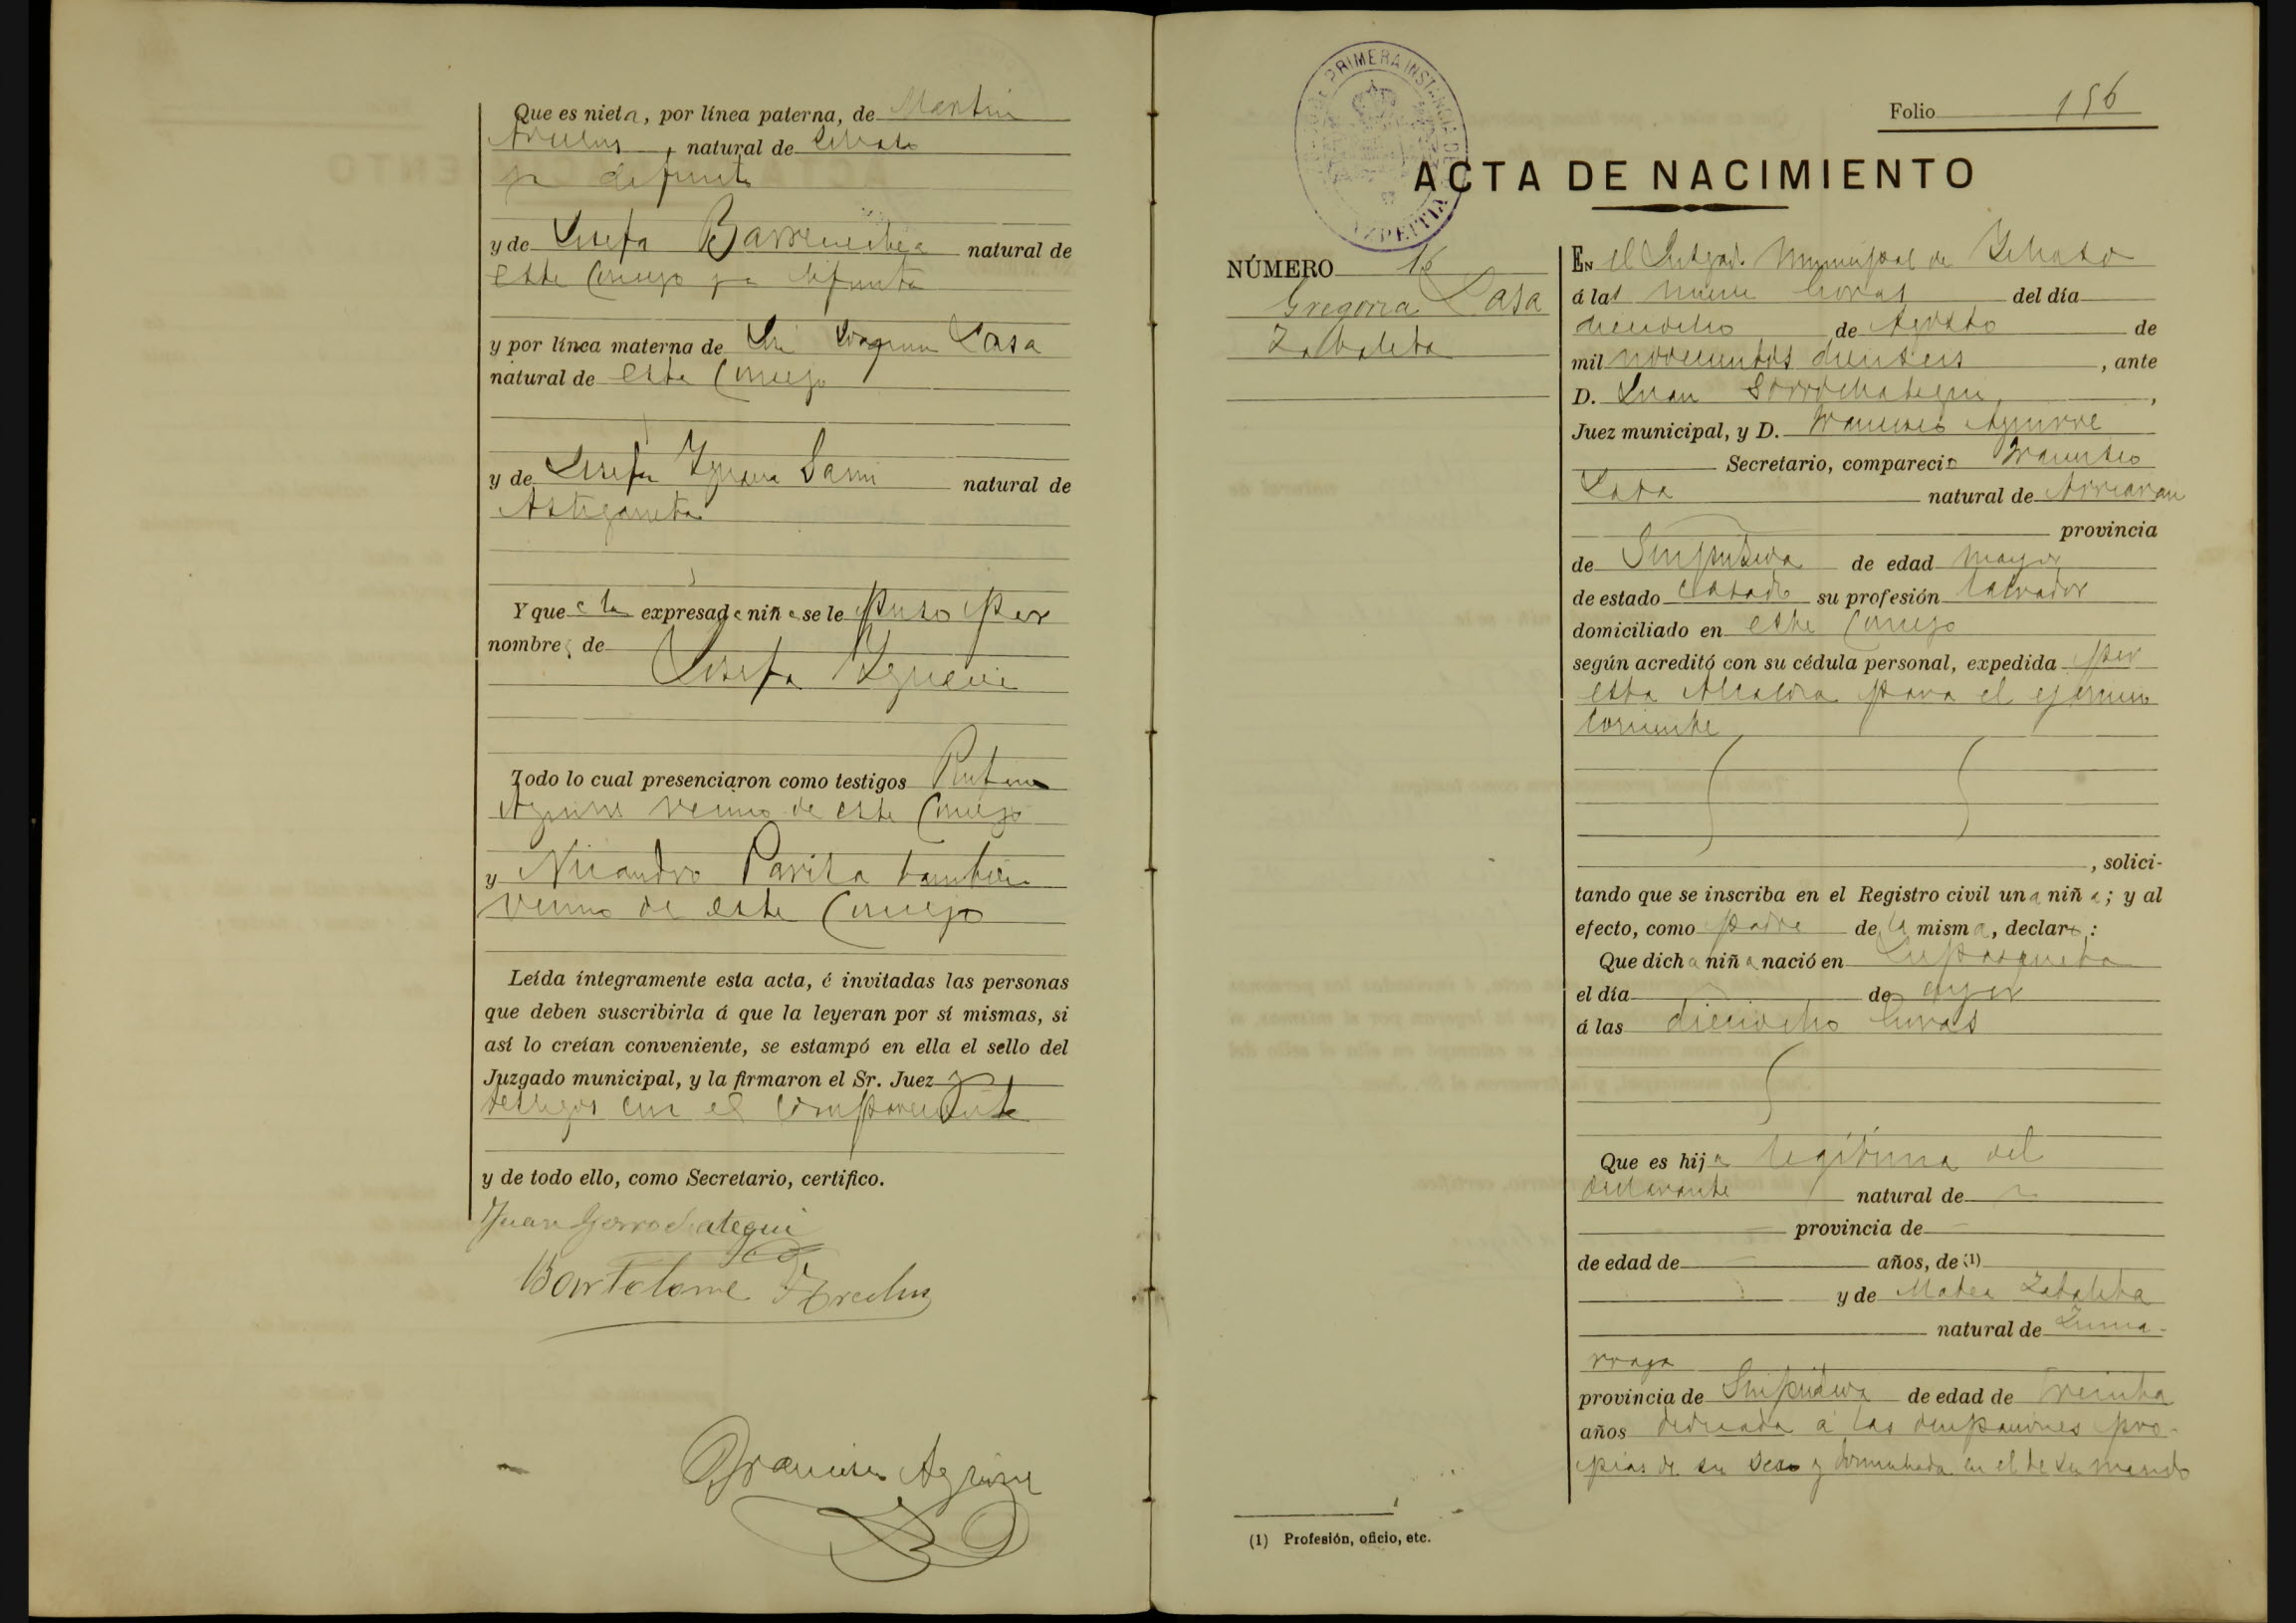 Que es nieta, por línea paterna, de Martin
natural de
ya difunto
y de Josefa Barrenechea natural de
este Concejo ya difunta
y por línea materna de José Joaquin Lasa
natural de este Concejo
y de Josefa Ignacia natural de
Astigarreta
Y que a la expresada niña se le puso por
nombre de
Josefa Ignacia
Todo lo cual presenciaron como testigos Rufino
Aguirre vecino de este Concejo
y Nicandro tambien
vecino de este Concejo
Leída íntegramente esta acta, é invitadas las personas
que deben suscribirla á que la leyeran por sí mismas, si
así lo creían conveniente, se estampó en ella el sello del
Juzgado municipal, y la firmaron el Sr. Juez y
testigos con el compareciente
y de todo ello, como Secretario, certifico.
Juan Gorrochategui
Bartolome
Francisco Aguirre
PRIMERA INSTANCIA DE
AZPEITIA
Folio 156
ACTA DE NACIMIENTO
NÚMERO 16
Gregoria Lasa
Zabaleta
En el Juzgado Municipal de
á las nueve horas del día
dieciocho de Agosto de
mil novecientos dieciseis, ante
D. Juan Gorrochategui,
Juez municipal, y D. Francisco Aguirre
Secretario, compareció Francisco
Lasa natural de Arriaran
provincia
de Guipuzcoa de edad mayor
de estado casado su profesión labrador
domiciliado en este Concejo
según acreditó con su cédula personal, expedida por
esta Alcaldia para el ejercicio
corriente
, solici-
tando que se inscriba en el Registro civil una niña; y al
efecto, como padre de la misma, declaró:
Que dicha niña nació en
el día de ayer
á las dieciocho horas
Que es hija legítima del
declarante natural de
provincia de
de edad de años, de (1)
y de Matea Zabaleta
natural de Zuma-
rraga
provincia de Guipuzcoa de edad de treinta
años dedicada a las ocupaciones pro-
pias de su sexo y domiciliada en el de su marido
(1) Profesión, oficio, etc.